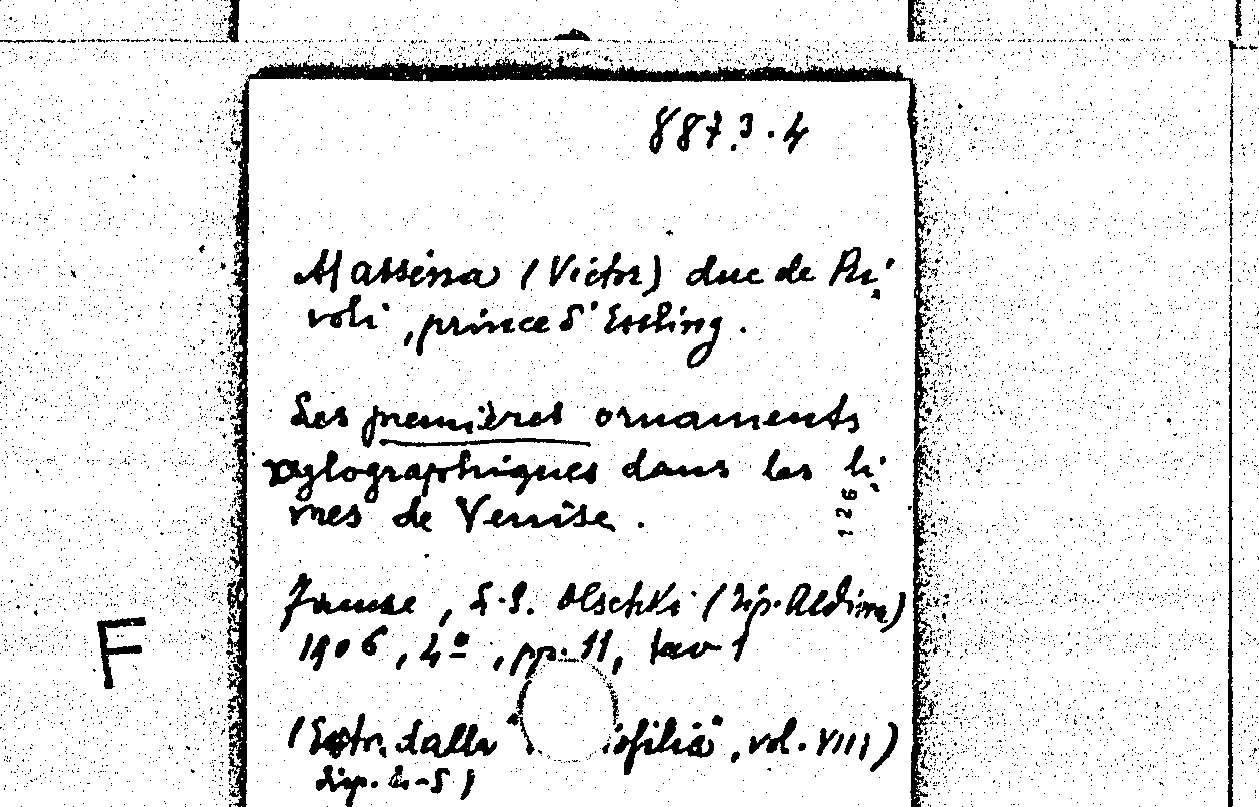 8873.4
Masséna (Victor) duc de Ri-
voli, prince d'Essling.
Les premières ornaments
xylographiques dans les li-
vres de Venise.
126
, L.S. Olschki (Tip. Aldina)
1906, 4º, pp. 11, tav 1
F
(Estr. dalla " iofilia", vol. VIII)
disp. 4-5)